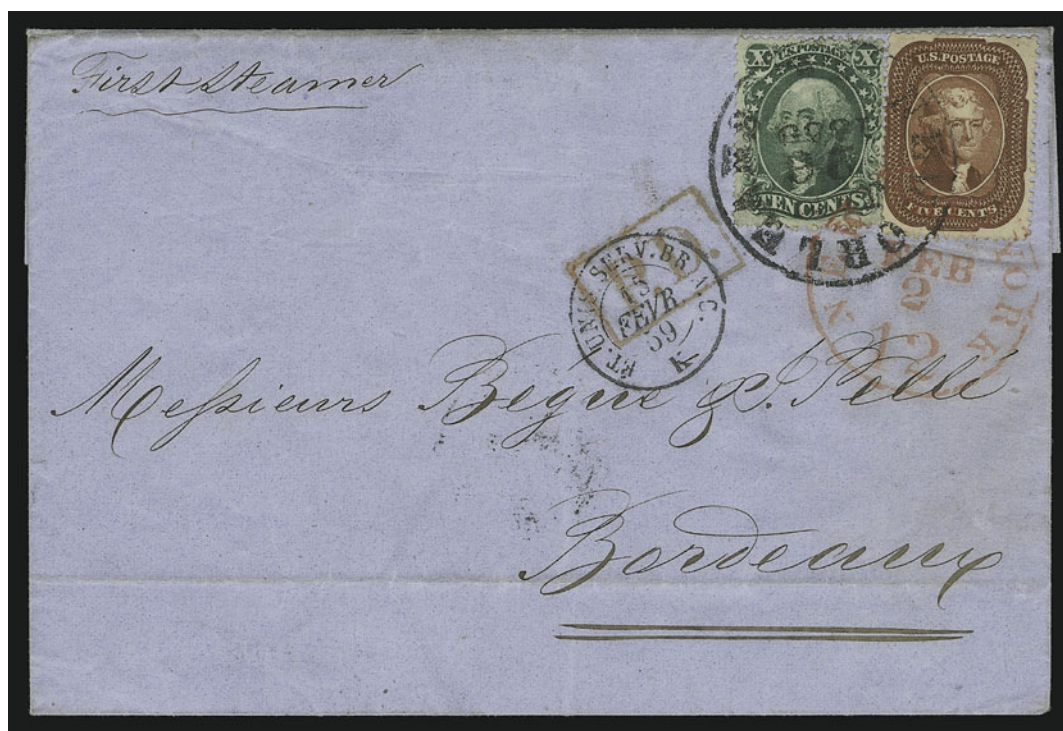 First Steamer
X U.S. POSTAGE X
TEN CENTS
U.S. POSTAGE
FIVE CENTS
ORLEA
NEW YORK
FEB
2
12
P.D.
ET. UNIS SERV. BR. A.C.
15
FEVR
59
K
Meſsieurs Bégué & P. Pellé
Bordeaux